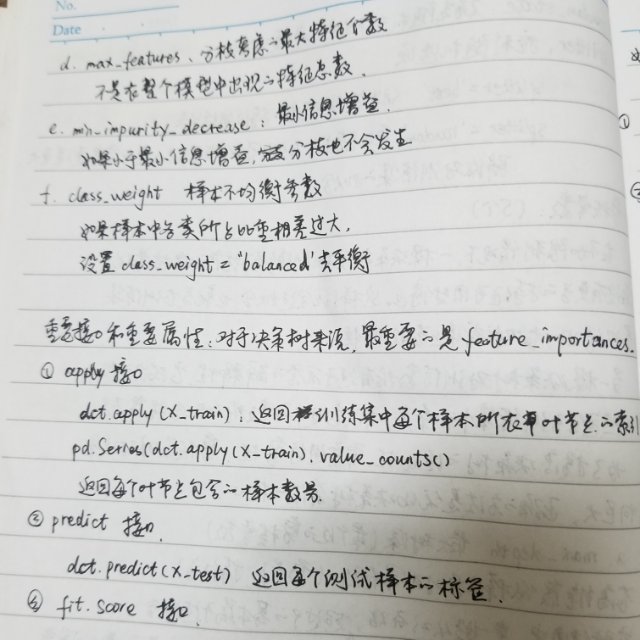 No.
Date
d. max_features. 分枝考虑的最大特征个数
不是在整个模型中出现的特征总数.
e. min_impurity_decrease: 最小信息增益.
如果小于最小信息增益, 分枝也不会发生
f. class_weight 样本不均衡参数
如果样本中各类所占比重相差过大.
设置 class_weight = "balanced' 去平衡
重要接口和重要属性: 对于决策树来说, 最重要的是 feature_importances.
① apply 接口
dct.apply(X_train): 返回训练集中每个样本所在叶节点的索引
pd.Series(dct.apply(X_train).value_counts()
返回每个叶节点包含的样本数量
② predict 接口.
dct.predict(X_test) 返回每个测试样本的标签.
③ fit. score 接口.